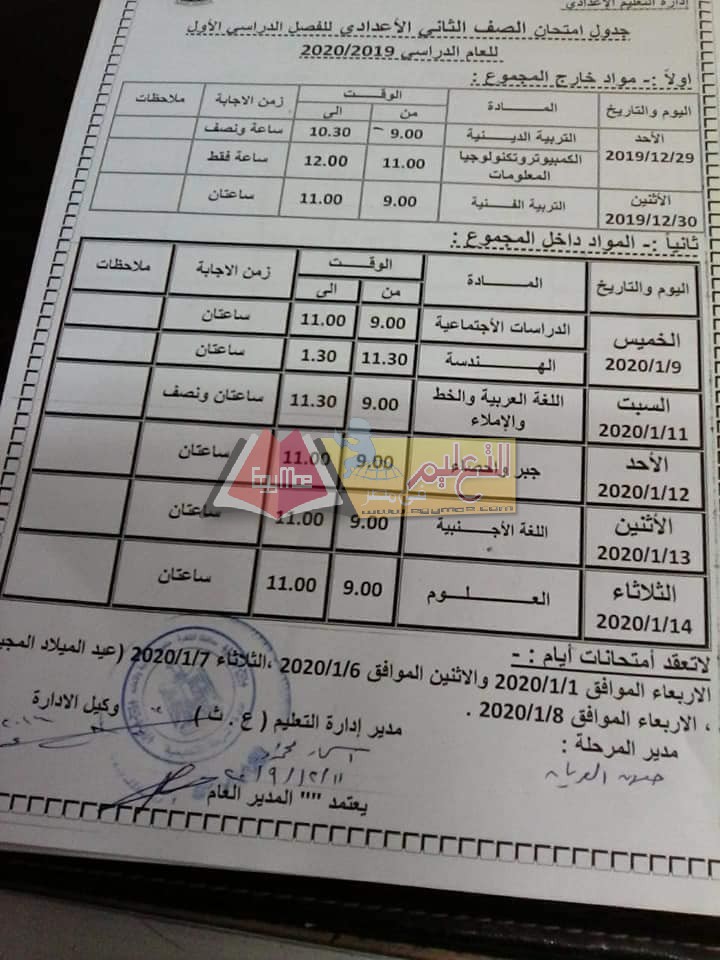 إدارة التعليم الاعدادي
جدول امتحان الصف الثاني الأعدادي للفصل الدراسي الأول
للعام الدراسي 2020/2019
اولاً :- مواد خارج المجموع :
اليوم والتاريخ المـــادة الوقـــت زمن الاجابة ملاحظات
من الى
الأحد 2019/12/29 التربية الدينية 9.00 10.30 ساعة ونصف
الكمبيوتر وتكنولوجيا المعلومات 11.00 12.00 ساعة فقط
الأثنين 2019/12/30 التربية الفنية 9.00 11.00 ساعتان
ثانياً :- المواد داخل المجموع :
اليوم والتاريخ المـــادة الوقـــت زمن الاجابة ملاحظات
من الى
الخميس 2020/1/9 الدراسات الأجتماعية 9.00 11.00 ساعتان
الهـــندسة 11.30 1.30 ساعتان
السبت 2020/1/11 اللغة العربية والخط والإملاء 9.00 11.30 ساعتان ونصف
الأحد 2020/1/12 جبر وإحصاء 9.00 11.00 ساعتان
الأثنين 2020/1/13 اللغة الأجنبية 9.00 11.00 ساعتان
الثلاثاء 2020/1/14 العـــلـــوم 9.00 11.00 ساعتان
EgyMoe
التعليم
في مصر
www.egymoe.com
لاتعقد أمتحانات أيام :-
الاربعاء الموافق 2020/1/1 والاثنين الموافق 2020/1/6 ،الثلاثاء 2020/1/7 (عيد الميلاد
، الاربعاء الموافق 2020/1/8 .
مدير المرحلة : مدير إدارة التعليم ( ع . ث ) وكيل الادارة
٢٠١٩/١٢/١١
يعتمد "" المدير العام